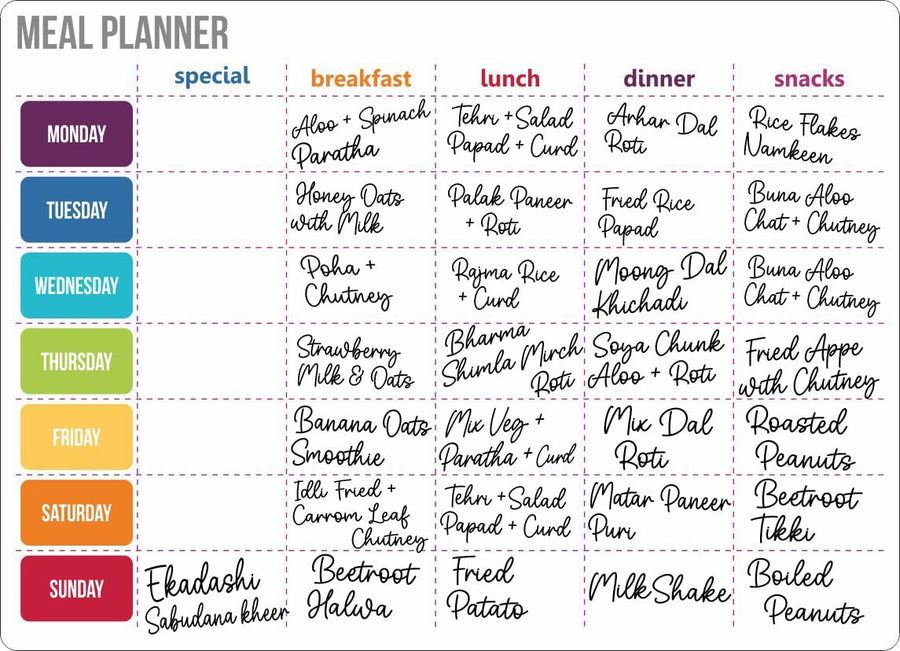 MEAL PLANNER
special breakfast lunch dinner snacks
MONDAY
Aloo + Spinach
Paratha
Tehri + Salad
Papad + Curd
Arhar Dal
Roti
Rice Flakes
Namkeen
TUESDAY
Honey Oats
with Milk
Palak Paneer
+ Roti
Fried Rice
Papad
Buna Aloo
Chat + Chutney
WEDNESDAY
Poha +
Chutney
Rajma Rice
+ Curd
Moong Dal
Khichadi
Buna Aloo
Chat + Chutney
THURSDAY
Strawberry
Milk & Oats
Bharma
Shimla Mirch
Roti
Soya Chunk
Aloo + Roti
Fried Appe
with Chutney
FRIDAY
Banana Oats
Smoothie
Mix Veg +
Paratha + Curd
Mix Dal
Roti
Roasted
Peanuts
SATURDAY
Idli Fried +
Carrom Leaf
Chutney
Tehri + Salad
Papad + Curd
Matar Paneer
Puri
Beetroot
Tikki
SUNDAY
Ekadashi
Sabudana kheer
Beetroot
Halwa
Fried
Patato
Milk Shake
Boiled
Peanuts